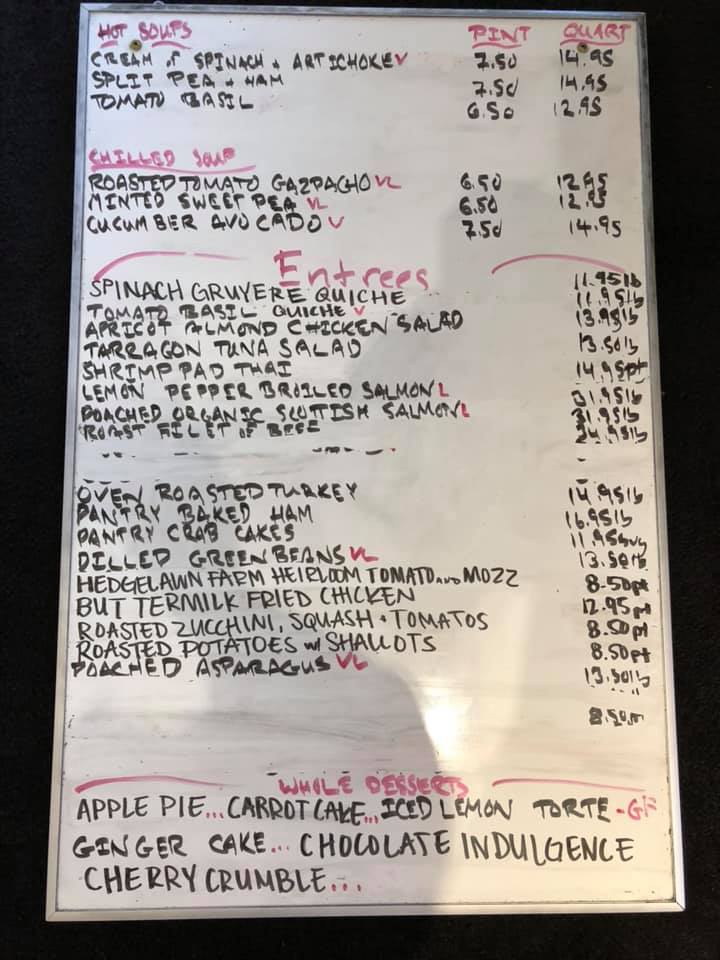 HOT SOUPS PINT QUART
CREAM of SPINACH + ARTICHOKE V 7.50 14.95
SPLIT PEA + HAM 7.50 14.95
TOMATO BASIL 6.50 12.95
CHILLED SOUP
ROASTED TOMATO GAZPACHO VL 6.50 12.95
MINTED SWEET PEA VL 6.50 12.95
CUCUMBER AVOCADO V 7.50 14.95
Entrees
SPINACH GRUYERE QUICHE 11.95lb
TOMATO BASIL QUICHE V 11.95lb
APRICOT ALMOND CHICKEN SALAD 13.95lb
TARRAGON TUNA SALAD 13.50lb
SHRIMP PAD THAI 14.95pt
LEMON PEPPER BROILED SALMON L 31.95lb
POACHED ORGANIC SCOTTISH SALMON L 31.95lb
ROAST FILET of BEEF
OVEN ROASTED TURKEY 14.95lb
PANTRY BAKED HAM 16.95lb
PANTRY CRAB CAKES
DILLED GREEN BEANS VL 13.50lb
HEDGELAWN FARM HEIRLOOM TOMATO AND MOZZ 8.50pt
BUTTERMILK FRIED CHICKEN 12.95pt
ROASTED ZUCCHINI, SQUASH + TOMATOS 8.50pt
ROASTED POTATOES w/ SHALLOTS 8.50pt
POACHED ASPARAGUS VL 13.50lb
WHOLE DESSERTS
APPLE PIE... CARROT CAKE... ICED LEMON TORTE - GF
GINGER CAKE... CHOCOLATE INDULGENCE
CHERRY CRUMBLE...